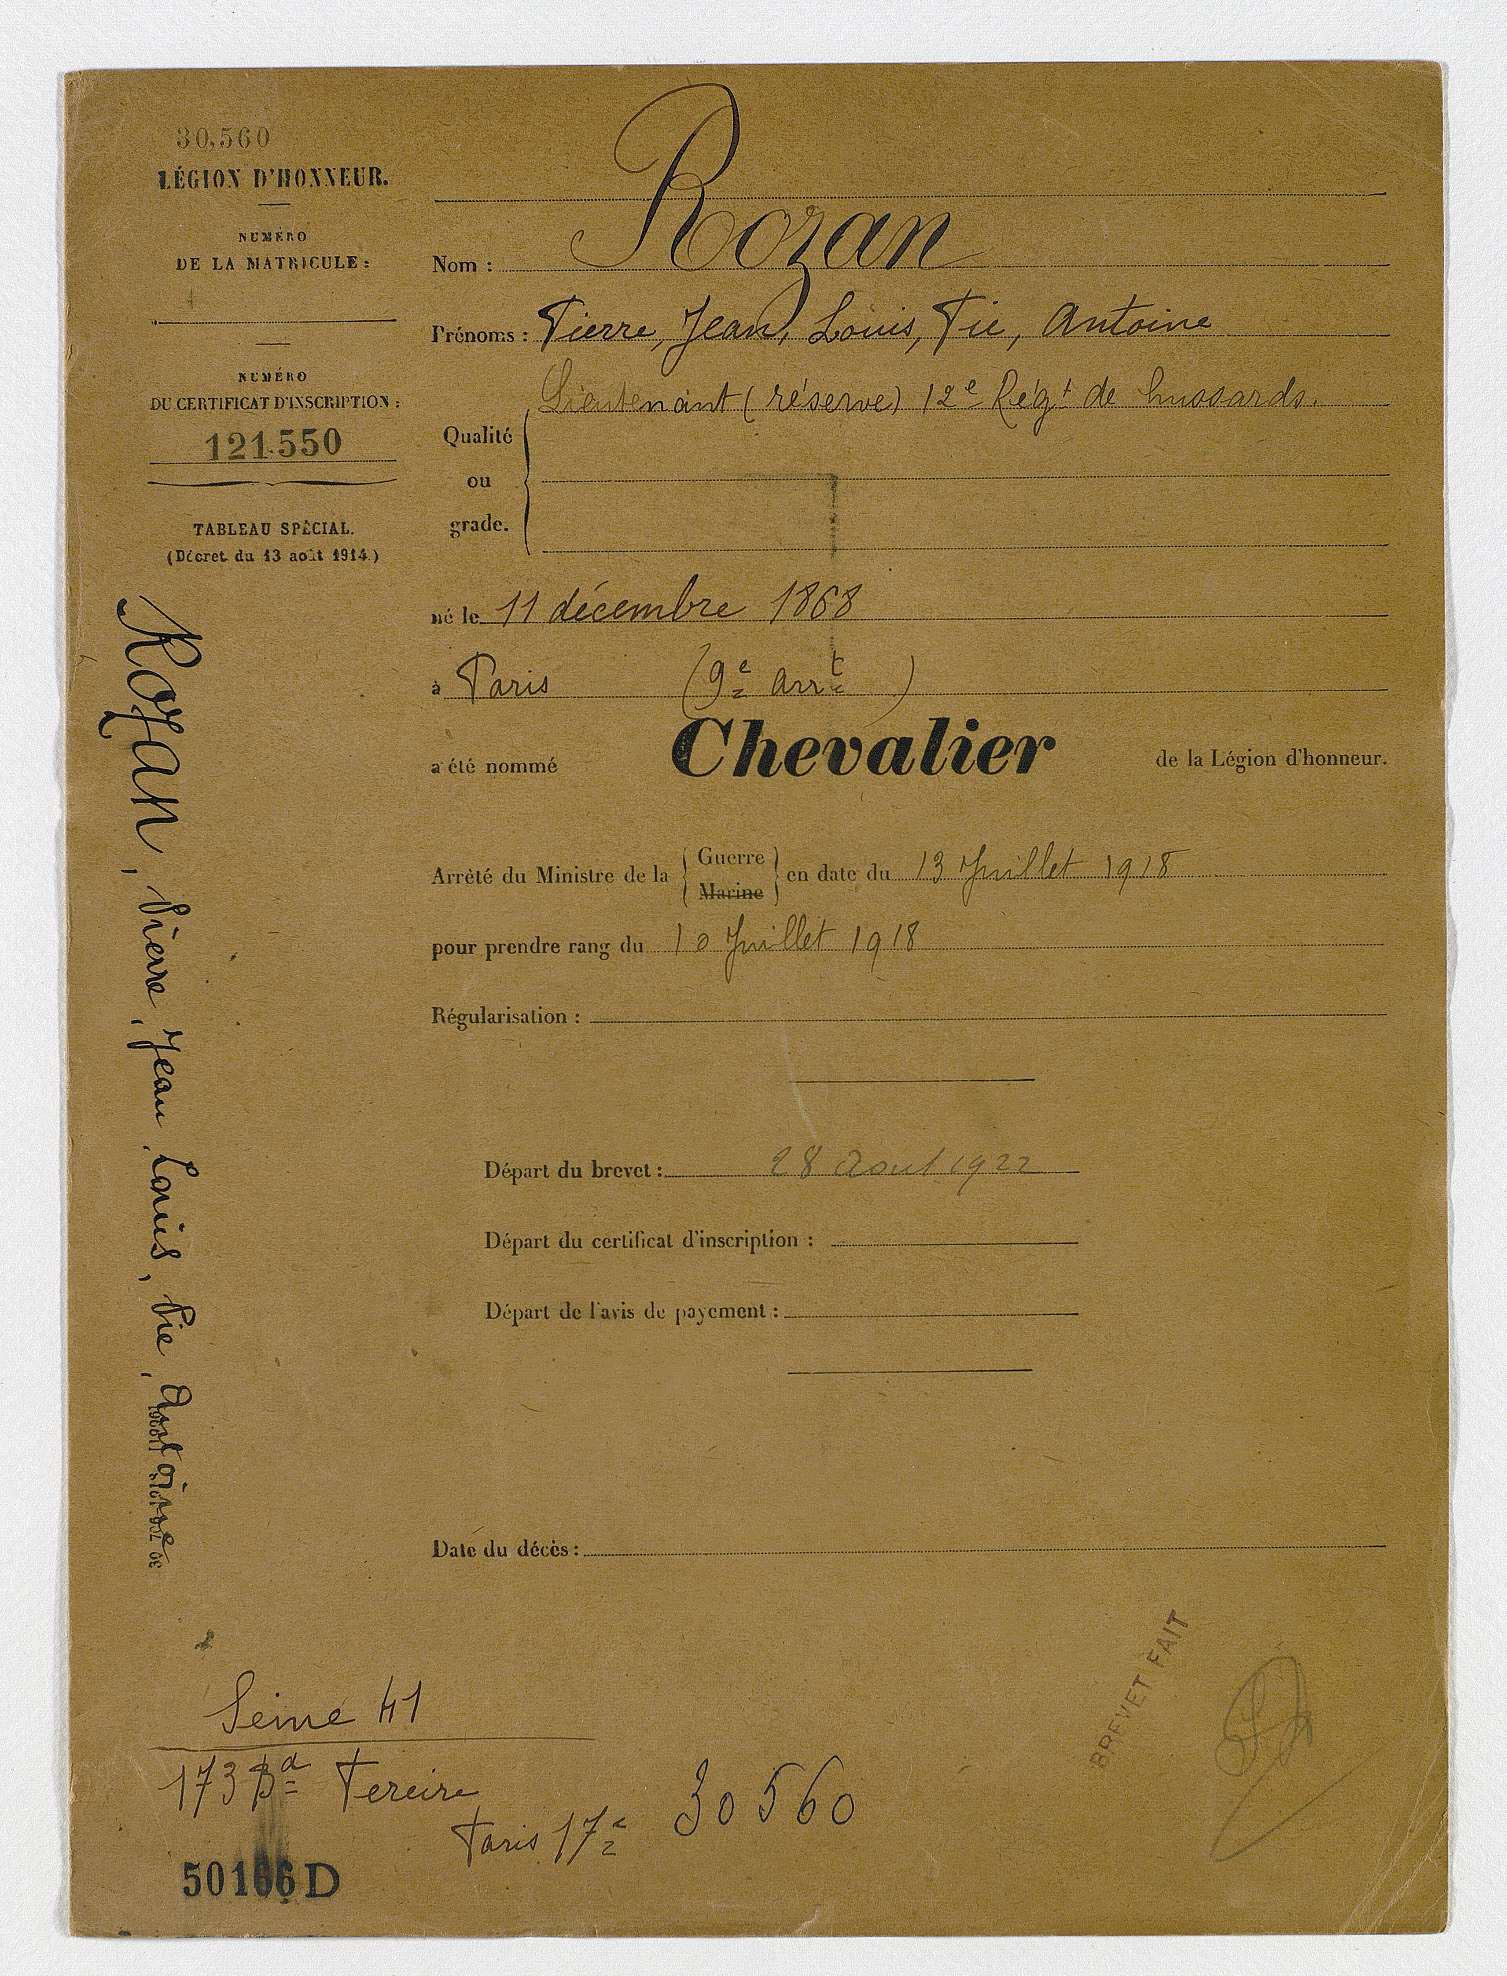 30,560
LÉGION D'HONNEUR.
NUMÉRO
DE LA MATRICULE :
NUMÉRO
DU CERTIFICAT D'INSCRIPTION :
121.550
TABLEAU SPÉCIAL.
(Décret du 13 août 1914.)
Rozan, Pierre, Jean, Louis, Pie, Antoine
Nom : Rozan
Prénoms : Pierre, Jean, Louis, Pie, Antoine
Qualité ou grade. Lieutenant (réserve) 12e Régt de hussards.
né le 11 décembre 1868
à Paris (9e Arrt)
a été nommé Chevalier de la Légion d'honneur.
Arrêté du Ministre de la Guerre Marine en date du 13 Juillet 1918
pour prendre rang du 10 Juillet 1918
Régularisation :
Départ du brevet : 28 Aout 1922
Départ du certificat d'inscription :
Départ de l'avis de payement :
Date du décès :
BREVET FAIT
Seine 41
173 Bd Pereire
Paris 17e
30560
50166 D